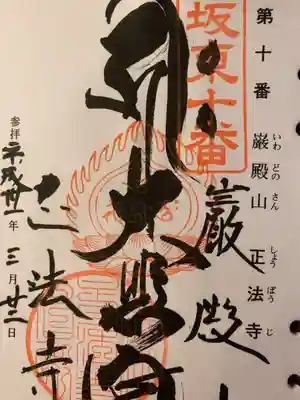 第十番 巌殿山 正法寺
いわ どの さん しょう ぼう じ
坂東十番
巖殿
大悲
正法寺
参拝 平成 年 三月 日